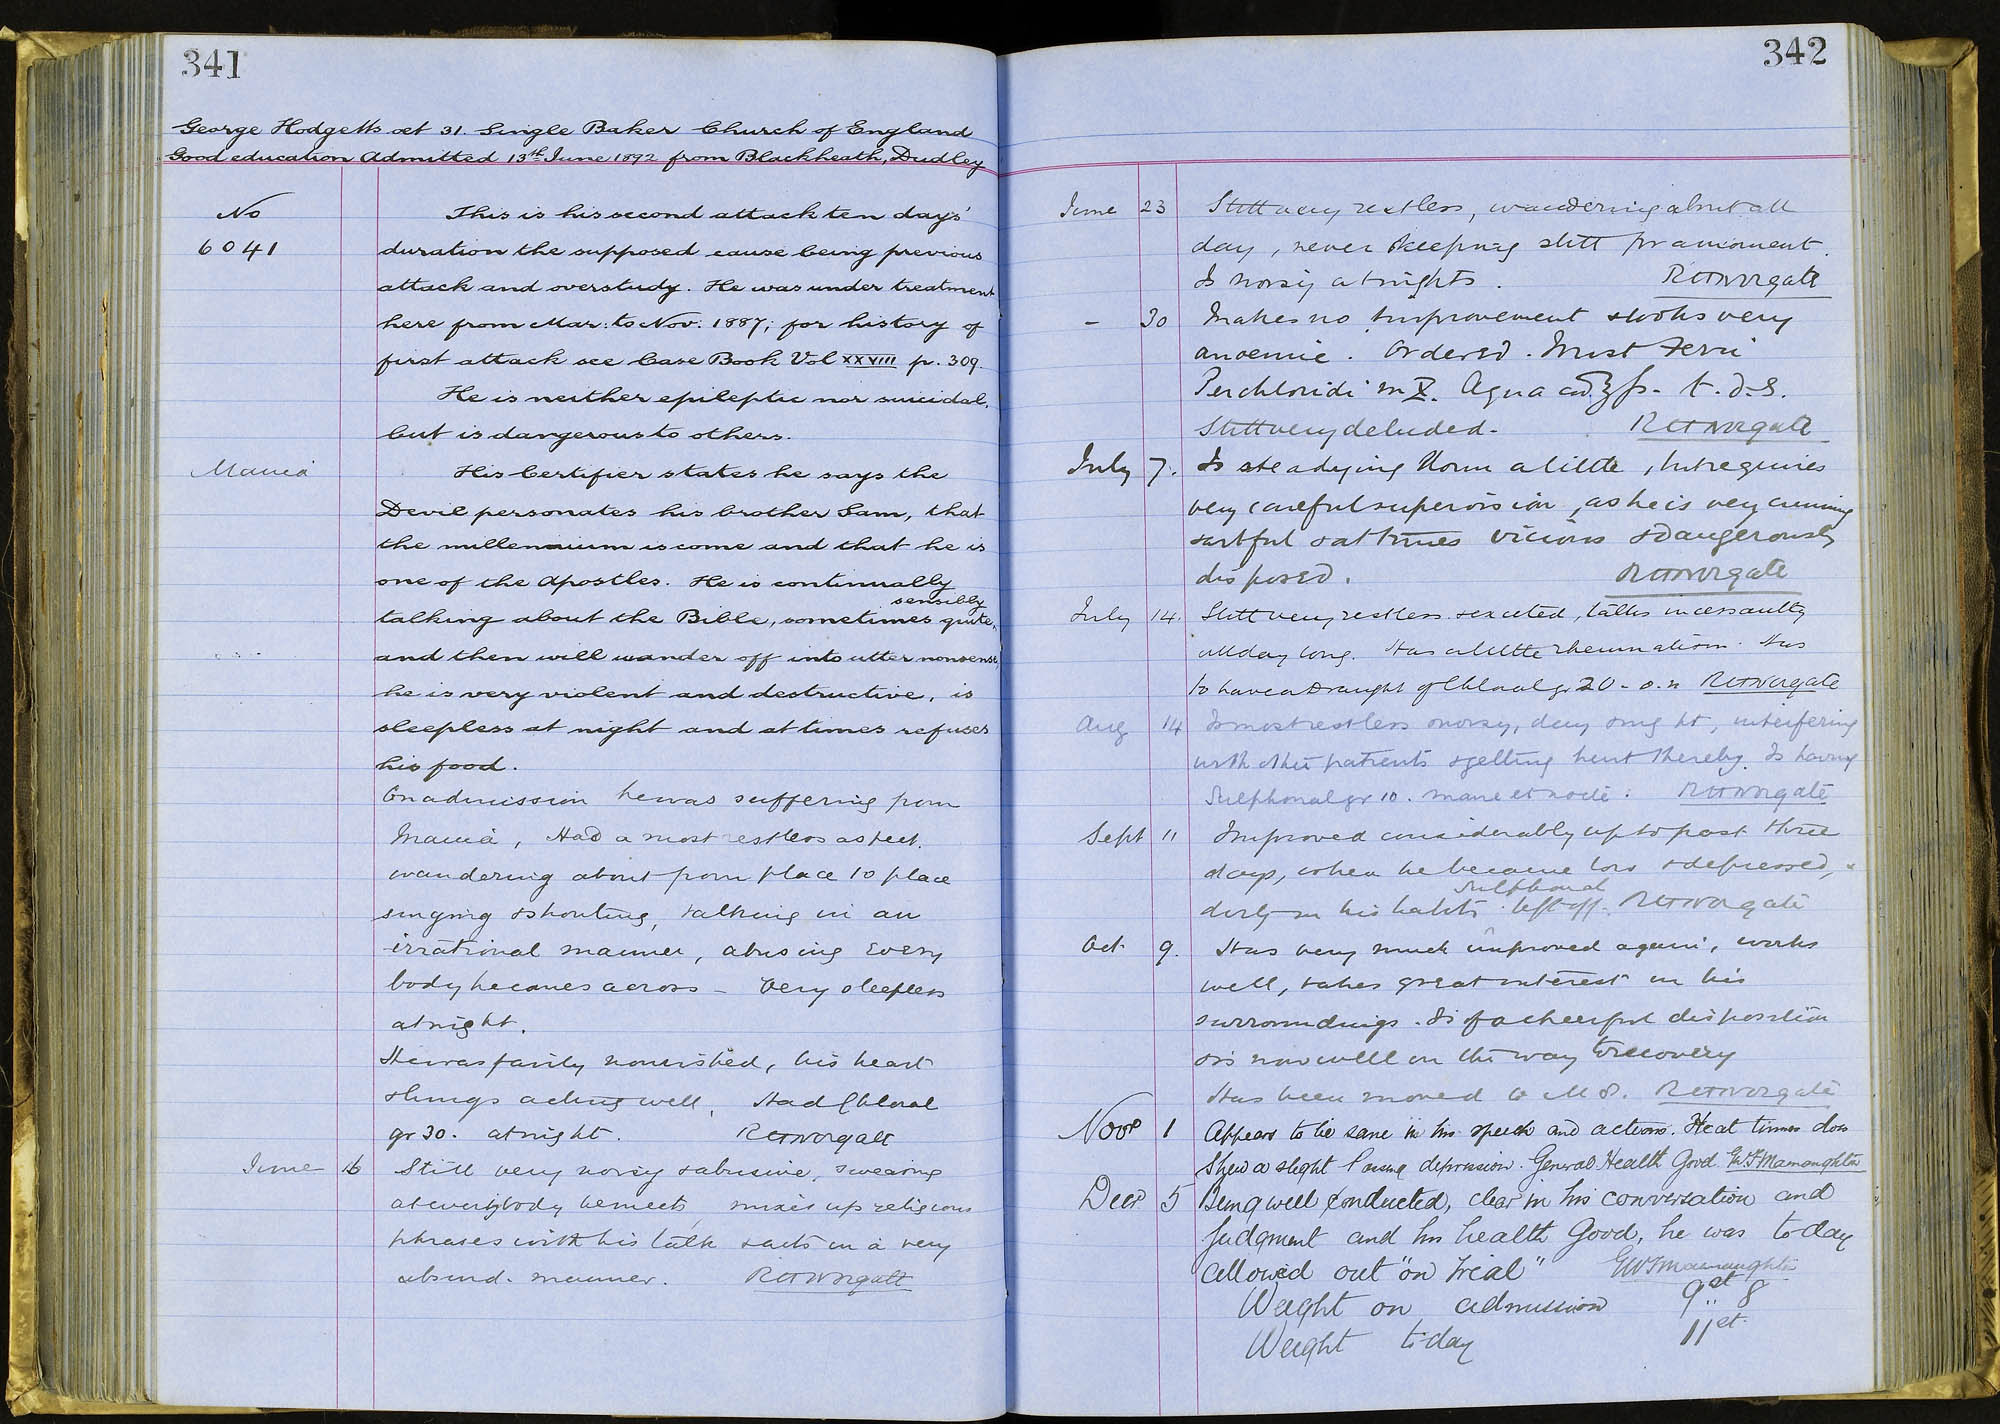 341
George Hodgetts aet 31. Single Baker Church of England
Good education Admitted 13th June 1892 from Blackheath, Dudley
No
6041
This is his second attack ten days'
duration the supposed cause being previous
attack and overstudy. He was under treatment
here from Mar: to Nov. 1887; for history of
first attack see Case Book Vol XXVIII p. 309.
He is neither epileptic nor suicidal,
but is dangerous to others.
Mania
His Certifier states he says the
Devil personates his brother Sam, that
the millennium is come and that he is
one of the Apostles. He is continually
talking about the Bible, sometimes quite sensibly,
and then will wander off into utter nonsense,
he is very violent and destructive, is
sleepless at night and at times refuses
his food.
On admission he was suffering from
Mania, Had a most restless aspect.
wandering about from place to place
singing & shouting, talking in an
irrational manner, abusing every
body he comes across – Very sleepless
at night.
He was fairly nourished, his heart
& lungs acting well. Had Chloral
gr 30. at night.
June 16 Still very noisy & abusive, swearing
at everybody he meets, mixes up religious
phrases with his talk & acts in a very
absurd manner.
342
June 23 Still very restless, wandering about all
day, never keeping still for a moment.
Is noisy at nights.
– 30 Makes no improvement & looks very
anoemic. Ordered. Mist Ferri
Perchloridi m X. Aqua ad ℥ fs. t.d.s.
Still very deluded.
July 7. Is steadying down a little, but requires
very careful supervision, as he is very cunning
& artful & at times vicious & dangerously
disposed.
July 14. Still very restless & excited, talks incessantly
all day long. Has a little rheumatism. Has
to have a Draught of Chloral gr 20 - o.n
Aug 14 Is most restless & noisy, day & night, interfering
with other patients & getting hurt thereby. Is having
Sulphonal gr 10. mane et nocte.
Sept 11 Improved considerably up to past three
days, when he became low & depressed, &
dirty in his habits. Sulphonal left off.
Oct. 9. Has very much improved again, works
well, takes great interest in his
surroundings. Is of a cheerful disposition
& is now well on the way to recovery
Has been moved to M 8.
Novr 1 Appears to be sane in his speech and actions. He at times does
shew a slight passing depression. General Health Good.
Decr 5 Being well conducted, clear in his conversation and
judgment and his health Good, he was today
allowed out "on trial"
Weight on admission 9st 8
Weight to day 11st.